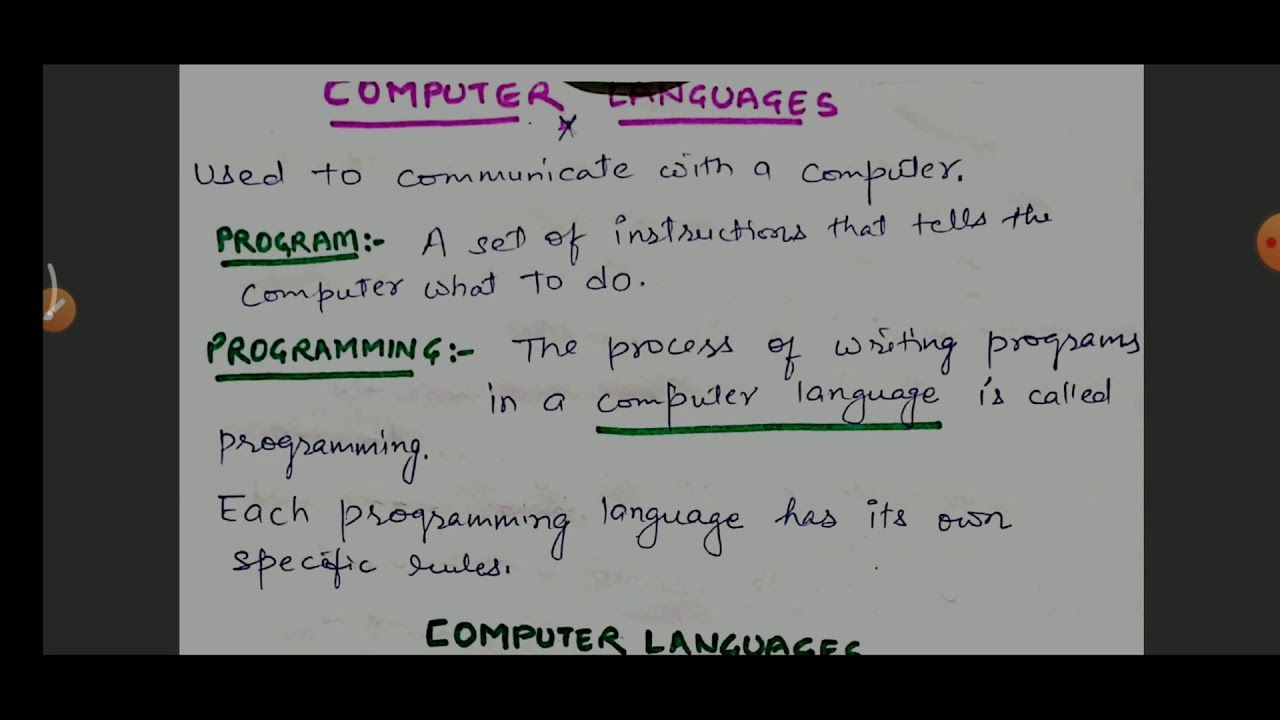 COMPUTER LANGUAGES
Used to communicate with a computer.
PROGRAM:- A set of instructions that tells the
computer what to do.
PROGRAMMING:- The process of writing programs
in a computer language is called
programming.
Each programming language has its own
specific rules.
COMPUTER LANGUAGES